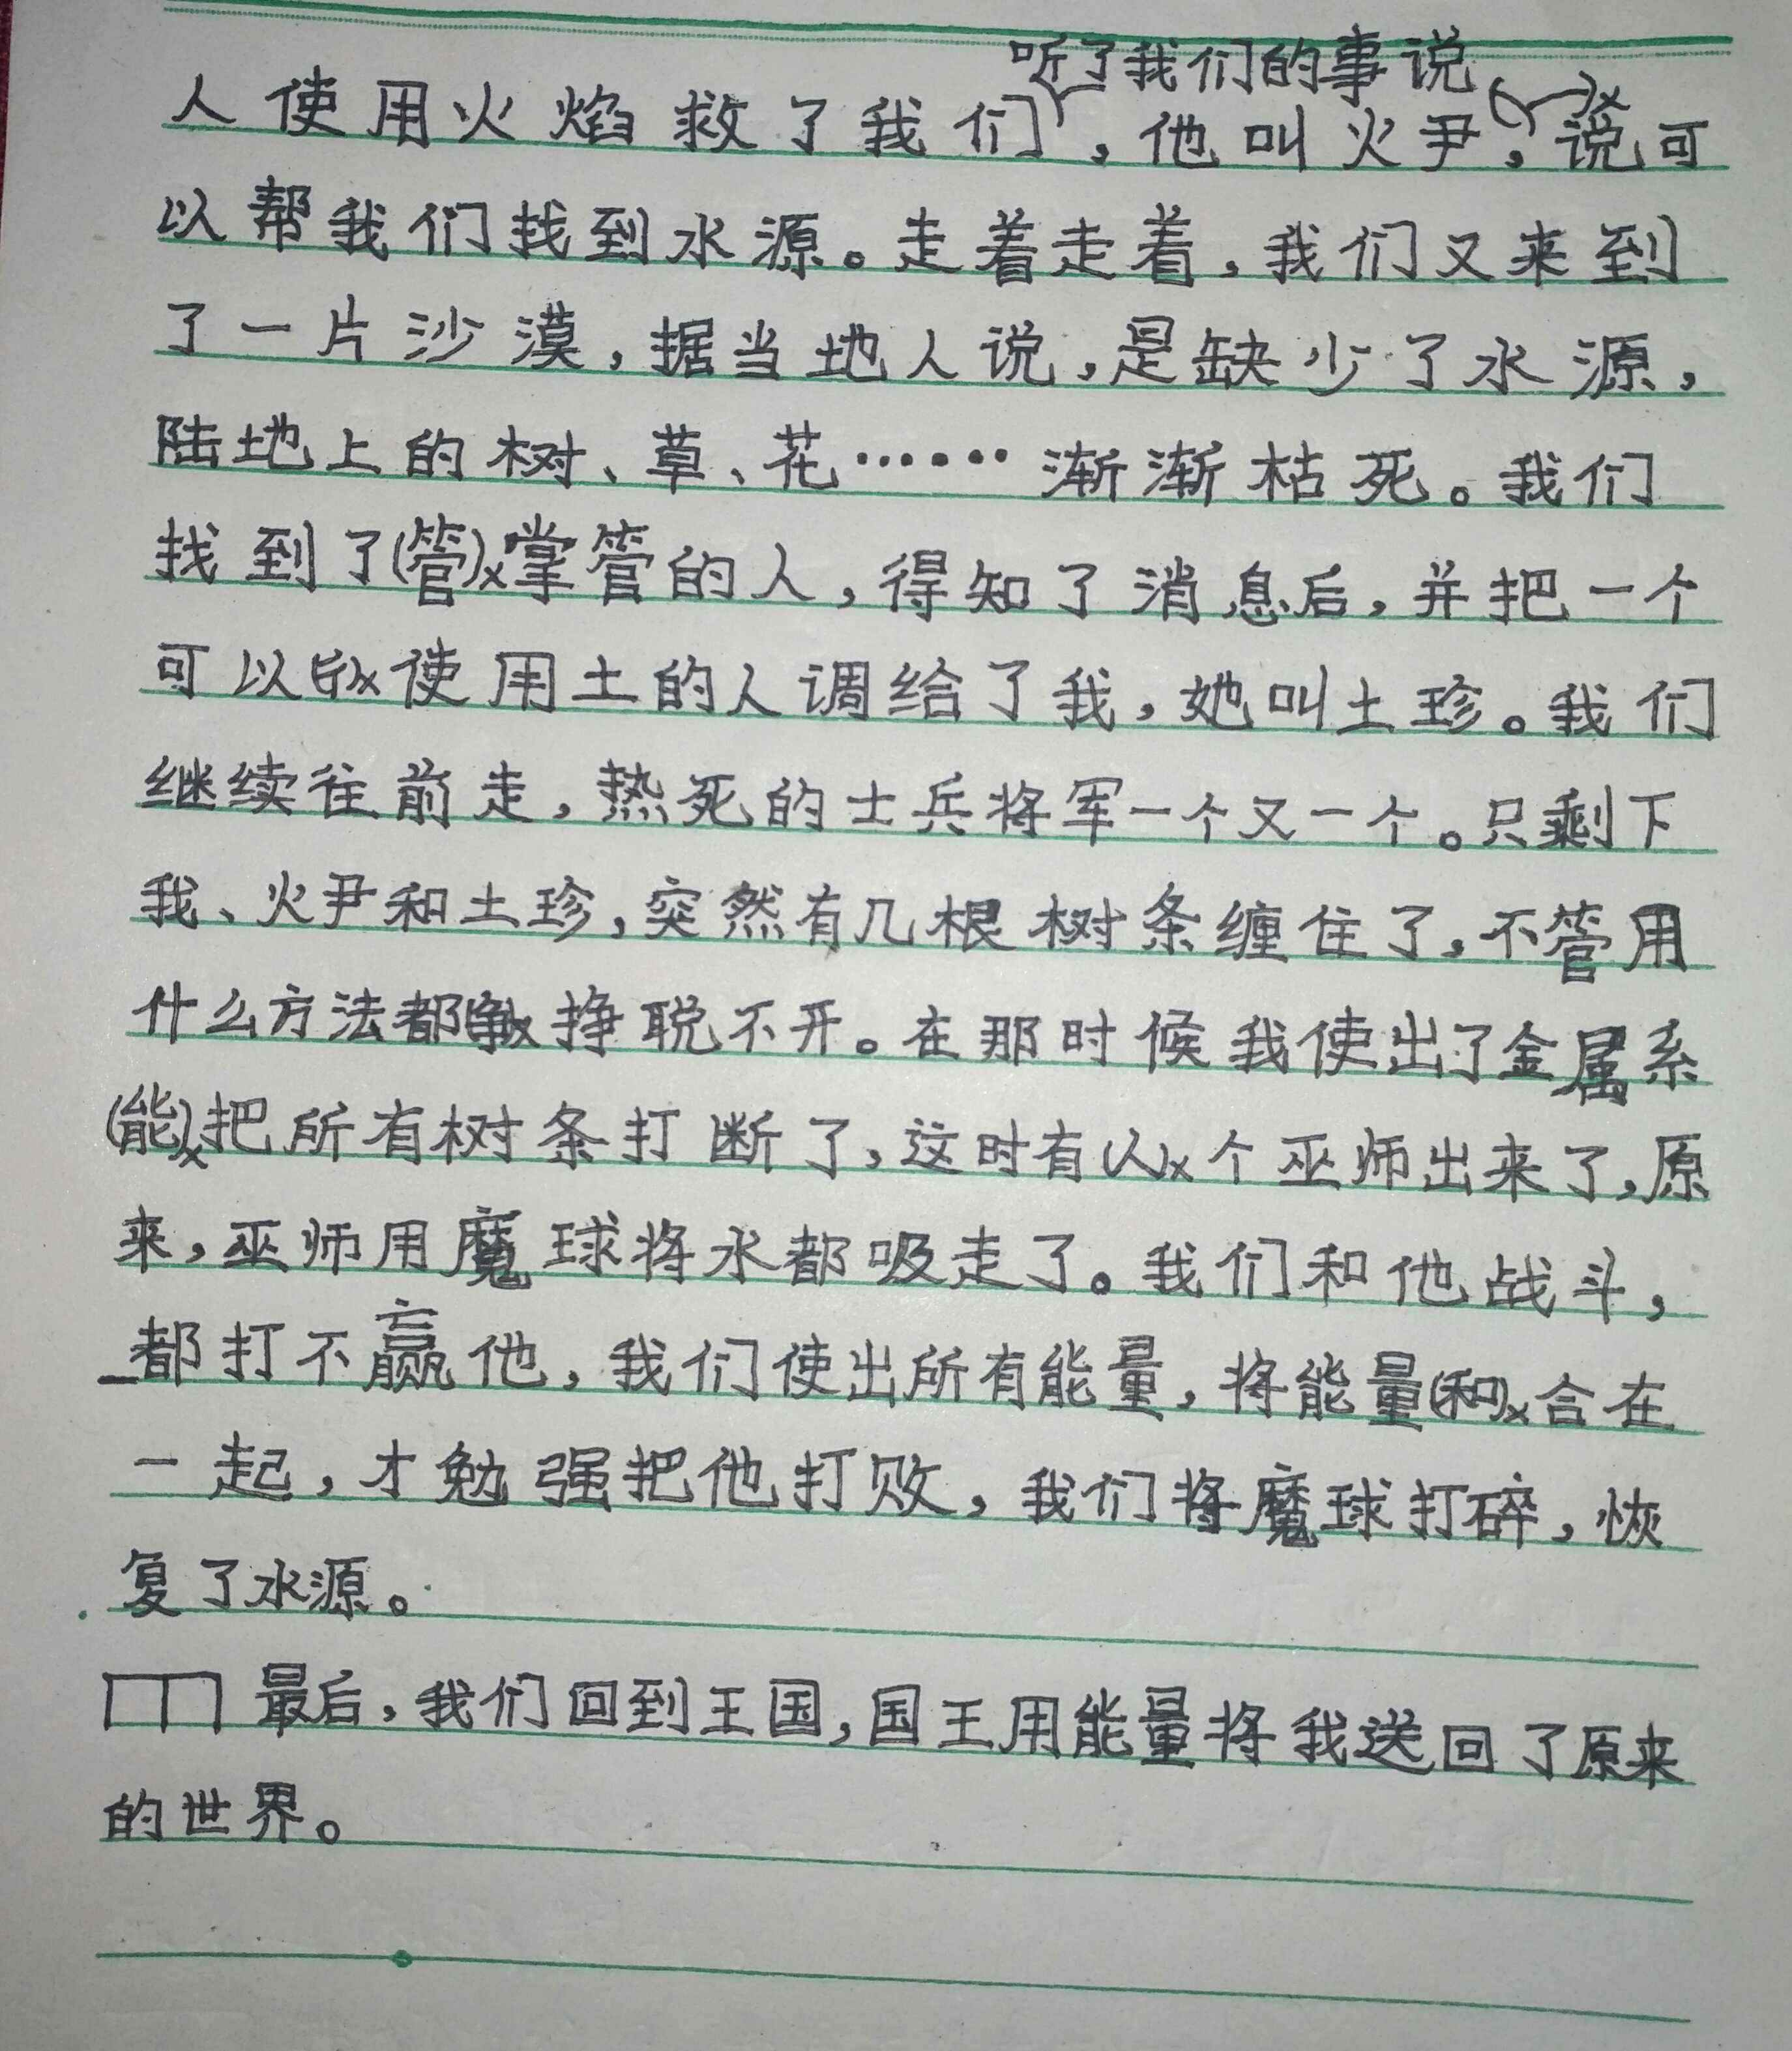 听了我们的事说
人使用火焰救了我们,他叫火尹,说可
以帮我们找到水源。走着走着,我们又来到
了一片沙漠,据当地人说,是缺少了水源,
陆地上的树、草、花……渐渐枯死。我们
找到了(管)x掌管的人,得知了消息后,并把一个
可以x使用土的人调给了我,她叫土珍。我们
继续往前走,热死的士兵将军一个又一个。只剩下
我、火尹和土珍,突然有几根树条缠住了,不管用
什么方法都x挣聪不开。在那时候我使出了金属系
(能)x把所有树条打断了,这时有x个巫师出来了,原
来,巫师用魔球将水都吸走了。我们和他战斗,
都打不赢他,我们使出所有能量,将能量(和)x合在
一起,才勉强把他打败,我们将魔球打碎,恢
复了水源。
最后,我们回到王国,国王用能量将我送回了原来
的世界。